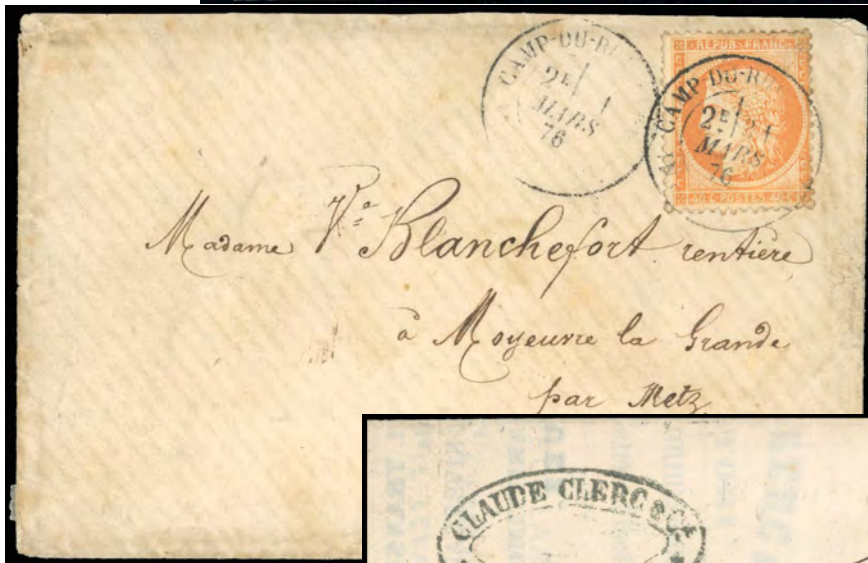 CAMP-DU-R
2E 1
MARS
76
REPUB. FRANC
CAMP-DU-R
2E 1
MARS
76
40 C POSTES 40 C
Madame Ve Blanchefort rentière
à Moyeuvre la Grande
par Metz
CLAUDE CLERC & Cie